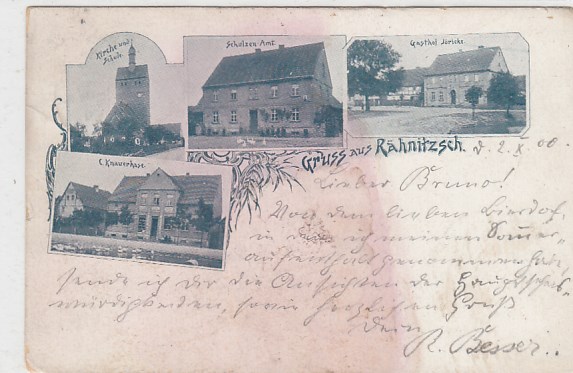 Kirche und
Schule.
Scholzen Amt.
Gasthof Järicke.
C. Knauerhase.
Gruss aus Rähnitzsch.
d. 2. X. 00.
Lieber Bruno!
Von dem lieben Bierdorf,
in dem ich meinen Sommer-
aufenthalt genommen habe,
sende ich dir die Ansichten der Hauptsehens-
würdigkeiten, sowie herzlichen Gruß
Dein
R. Besser.